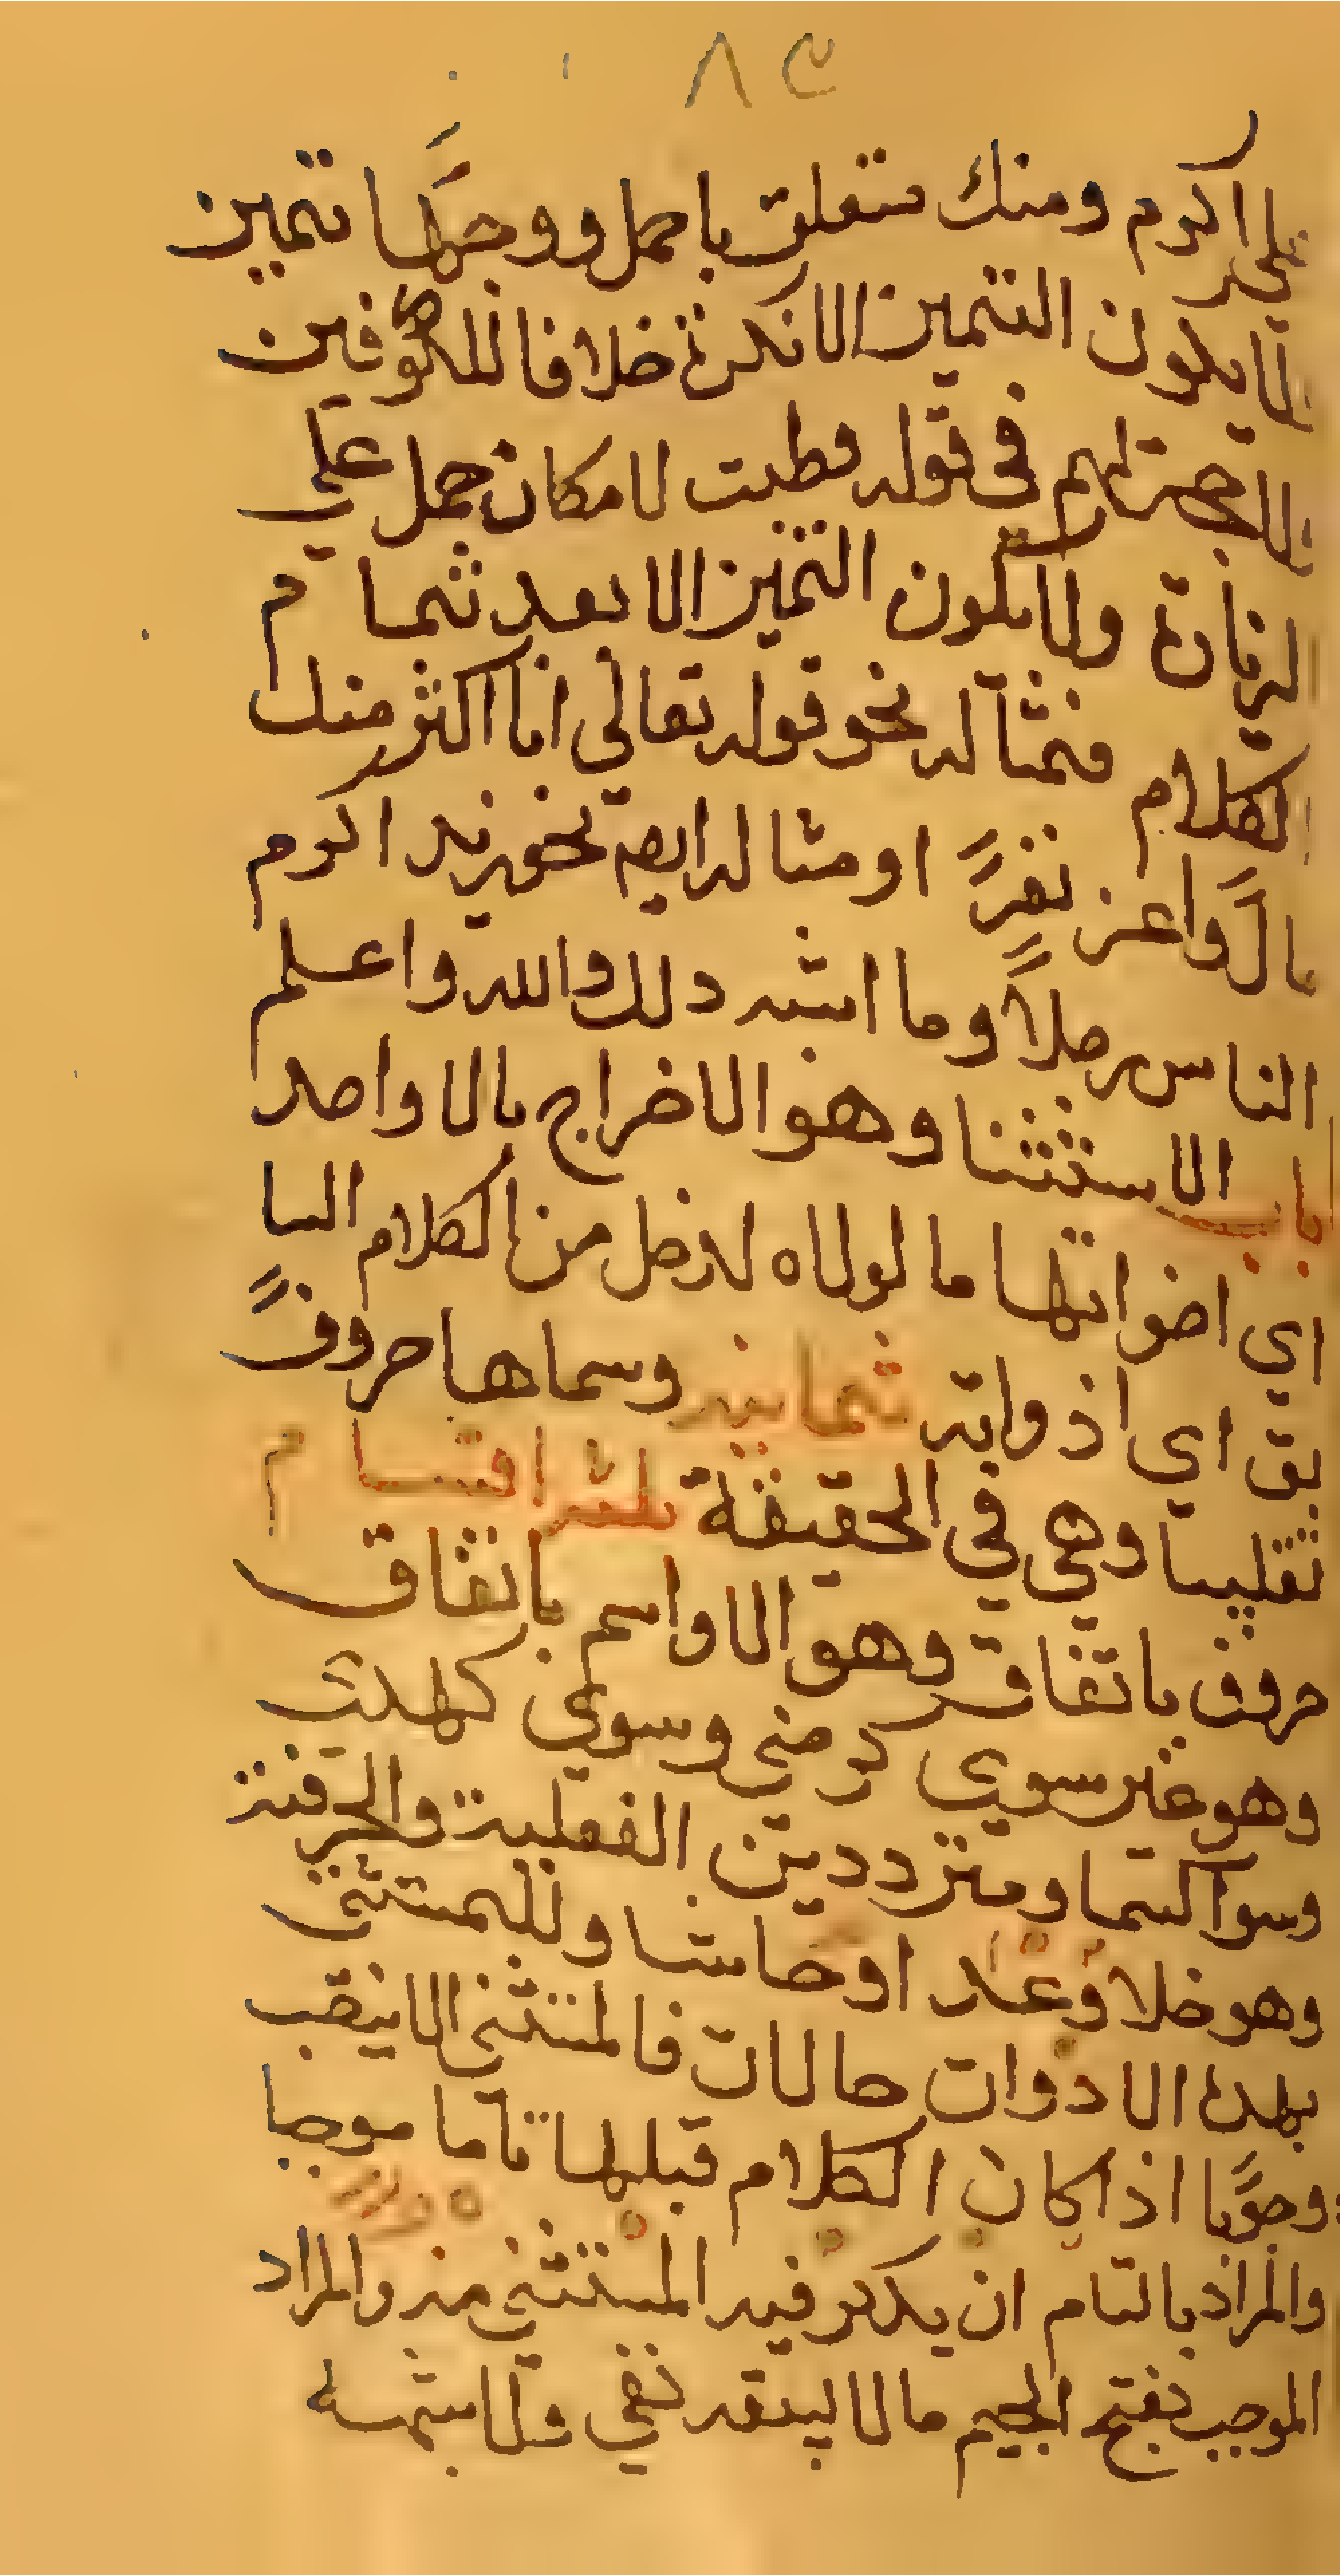 ٨٣
على اكرم ومنك متعلق باجمل ووجهًا تميز
ولا يكون التميز الا نكرة خلافا للكوفين
ولا حجة لهم في قوله وطبت لامكان حمل على
الزيادة ولا يكون التميز الا بعد تمام
الكلام فمثاله نحو قوله تعالى انا اكثر منك
مالًا واعز نفرًا او مثاله ايضا نحو زيد اكرم
الناس رجلاً وما اشبه ذلك والله واعلم
باب الاستثنا وهو الاخراج بالا واحد
اي اخواتها ما لولاه لدخل من الكلام السا
بق اي اذواته ثمانية وسماها حروفًا
تغليبا وهي في الحقيقة ثلثة اقسام
حروف باتفاق وهو الا واسم باتفاق
وهو غير سوي كرضى وسوى كهدى
وسوا كسما ومتردد بين الفعلية والحرفية
وهو خلا وعدا وحاشا وللمستثنى
بهذه الادوات حالات فالمستثنى الا ينصب
وجوبًا اذا كان الكلام قبلها تاما موجبا
والمراد بالتام ان يذكر فيه المستثنى منه والمراد
الموجب بفتح الجيم ما لا يسبقه نفي ولا شبهه